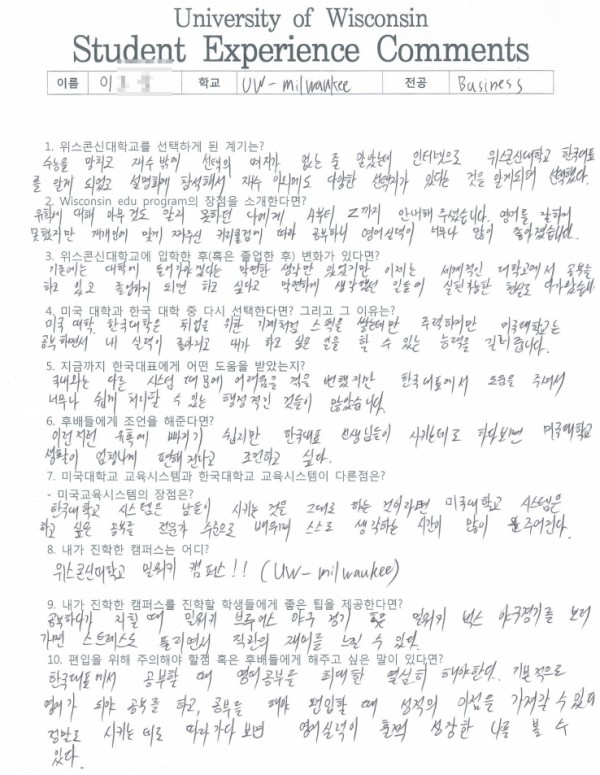 University of Wisconsin
Student Experience Comments
이름 이 학교 UW - milwaukee 전공 Business
1. 위스콘신대학교를 선택하게 된 계기는?
수능을 망치고 재수 밖에 선택의 여지가 없는 줄 알았는데 인터넷으로 위스콘신대학교 한국대표
를 알게 되었고 설명회에 참석해서 재수 이외에도 다양한 선택지가 있다는 것을 알게되어 선택했다.
2. Wisconsin edu program의 장점을 소개한다면?
유학에 대해 아무것도 알지 못하던 나에게 A부터 Z까지 안내해 주셨습니다. 영어를 잘하지
못했지만 개개인에 맞게 짜주신 커리큘럼에 따라 공부하니 영어실력이 너무나 많이 좋아졌습니다.
3. 위스콘신대학교에 입학한 후(혹은 졸업한 후) 변화가 있다면?
기존에는 대학에 들어가야겠다는 막연한 생각만 있었지만 이제는 세계적인 대학교에서 공부를
하고 있고 졸업하게 되면 하고 싶다고 막연하게 생각했던 일들이 실현가능한 현실로 다가왔습니다
4. 미국 대학과 한국 대학 중 다시 선택한다면? 그리고 그 이유는?
미국 대학. 한국대학은 취업을 위한 기계처럼 스펙을 쌓는데만 주력하지만 미국대학교는
공부하면서 내 실력이 좋아지고 내가 하고 싶은 일을 할 수 있는 능력을 길러줍니다.
5. 지금까지 한국대표에게 어떤 도움을 받았는지?
국내와는 다른 시스템 때문에 어려움을 겪을 뻔했지만 한국대표에서 도움을 주셔서
너무나 쉽게 처리할 수 있는 행정적인 것들이 많았습니다.
6. 후배들에게 조언을 해준다면?
이런저런 유혹에 빠지기 쉽지만 한국대표 선생님들이 시키는데로 하다보면 미국대학교
생활이 엄청나게 편해진다고 조언하고 싶다.
7. 미국대학교 교육시스템과 한국대학교 교육시스템이 다른점은?
- 미국교육시스템의 장점은?
한국대학교 시스템은 남들이 시키는 것을 그대로 하는 것이라면 미국대학교 시스템은
하고 싶은 공부를 전문가 수준으로 배우며 스스로 생각하는 시간이 많이 주어진다.
8. 내가 진학한 캠퍼스는 어디?
위스콘신대학교 밀워키 캠퍼스!! (UW-milwaukee)
9. 내가 진학한 캠퍼스를 진학할 학생들에게 좋은 팁을 제공한다면?
공부하다가 지칠 때 밀워키 브루어스 야구 경기 혹은 밀워키 벅스 야구경기를 보러
가면 스트레스도 풀리면서 직관의 재미를 느낄 수 있다.
10. 편입을 위해 주의해야 할점 혹은 후배들에게 해주고 싶은 말이 있다면?
한국대표에서 공부할 때 영어공부를 최대한 열심히 해야한다. 기본적으로
영어가 되야 공부를 하고, 공부를 해야 편입할 때 성적의 이점을 가져갈 수 있다
정말로 시키는 대로 따라가다 보면 영어실력이 훌쩍 성장한 나를 볼 수
있다.